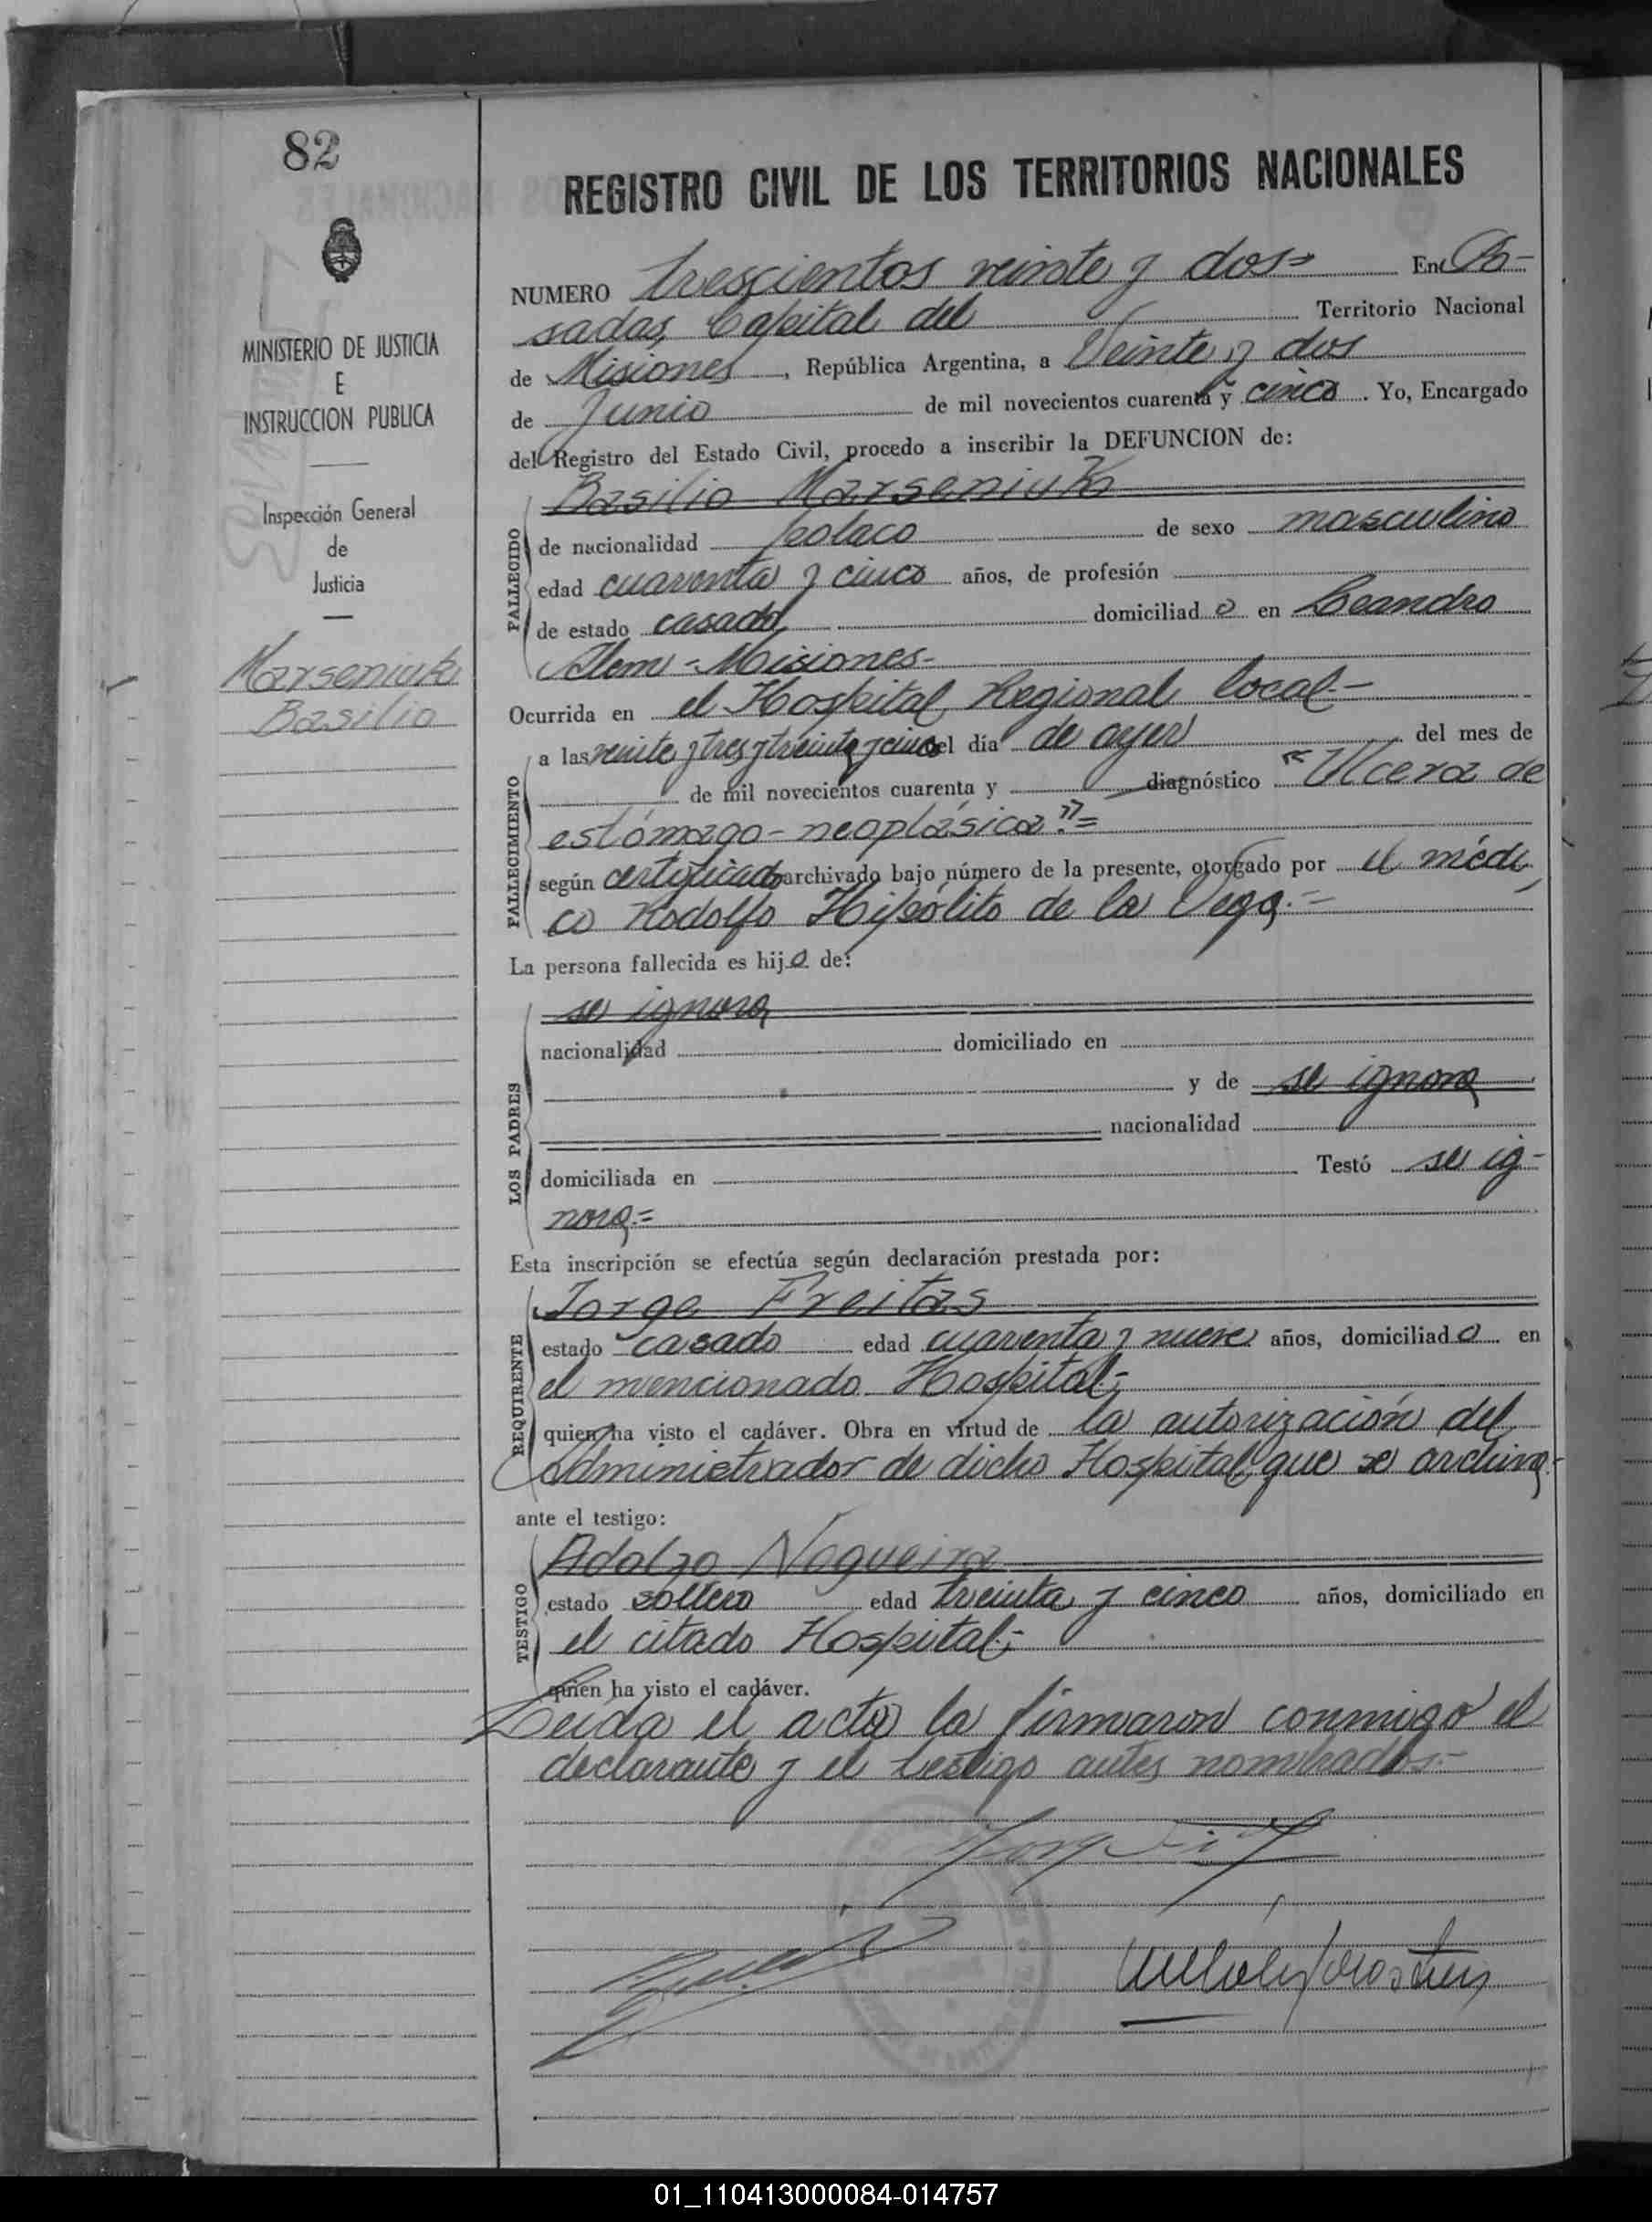 82
MINISTERIO DE JUSTICIA
E
INSTRUCCION PUBLICA
Inspección General
de
Justicia
Marseniuk
Basilio
REGISTRO CIVIL DE LOS TERRITORIOS NACIONALES
NUMERO trescientos veinte y dos= En Po-
sadas, Capital del Territorio Nacional
de Misiones, República Argentina, a Veinte y dos
de Junio de mil novecientos cuarenta y cinco. Yo, Encargado
del Registro del Estado Civil, procedo a inscribir la DEFUNCION de:
Basilio Marseniuk
FALLECIDO
de nacionalidad polaco de sexo masculino
edad cuarenta y cinco años, de profesión
de estado casado, domiciliado en Leandro
Alem - Misiones-
Ocurrida en el Hospital Regional local.-
FALLECIMIENTO
a las veinte y tres y treinta y cinco del día de ayer del mes de
de mil novecientos cuarenta y diagnóstico "Ulcera de
estómago-neoplásica".=
según certificado archivado bajo número de la presente, otorgado por el médi
co Rodolfo Hipólito de la Vega.=
La persona fallecida es hijo de:
LOS PADRES
se ignora
nacionalidad domiciliado en
y de se ignora
nacionalidad
domiciliada en Testó se ig-
nora.=
Esta inscripción se efectúa según declaración prestada por:
REQUIRENTE
Jorge Freitas
estado casado edad cuarenta y nueve años, domiciliado en
el mencionado Hospital;-
quien ha visto el cadáver. Obra en virtud de la autorización del
Administrador de dicho Hospital que se archiva.-
ante el testigo:
TESTIGO
Adolfo Nogueira
estado soltero edad treinta y cinco años, domiciliado en
el citado Hospital;-
quien ha visto el cadáver.
Leida el acta la firmaron conmigo el
declarante y el testigo antes nombrados.-
01_110413000084-014757